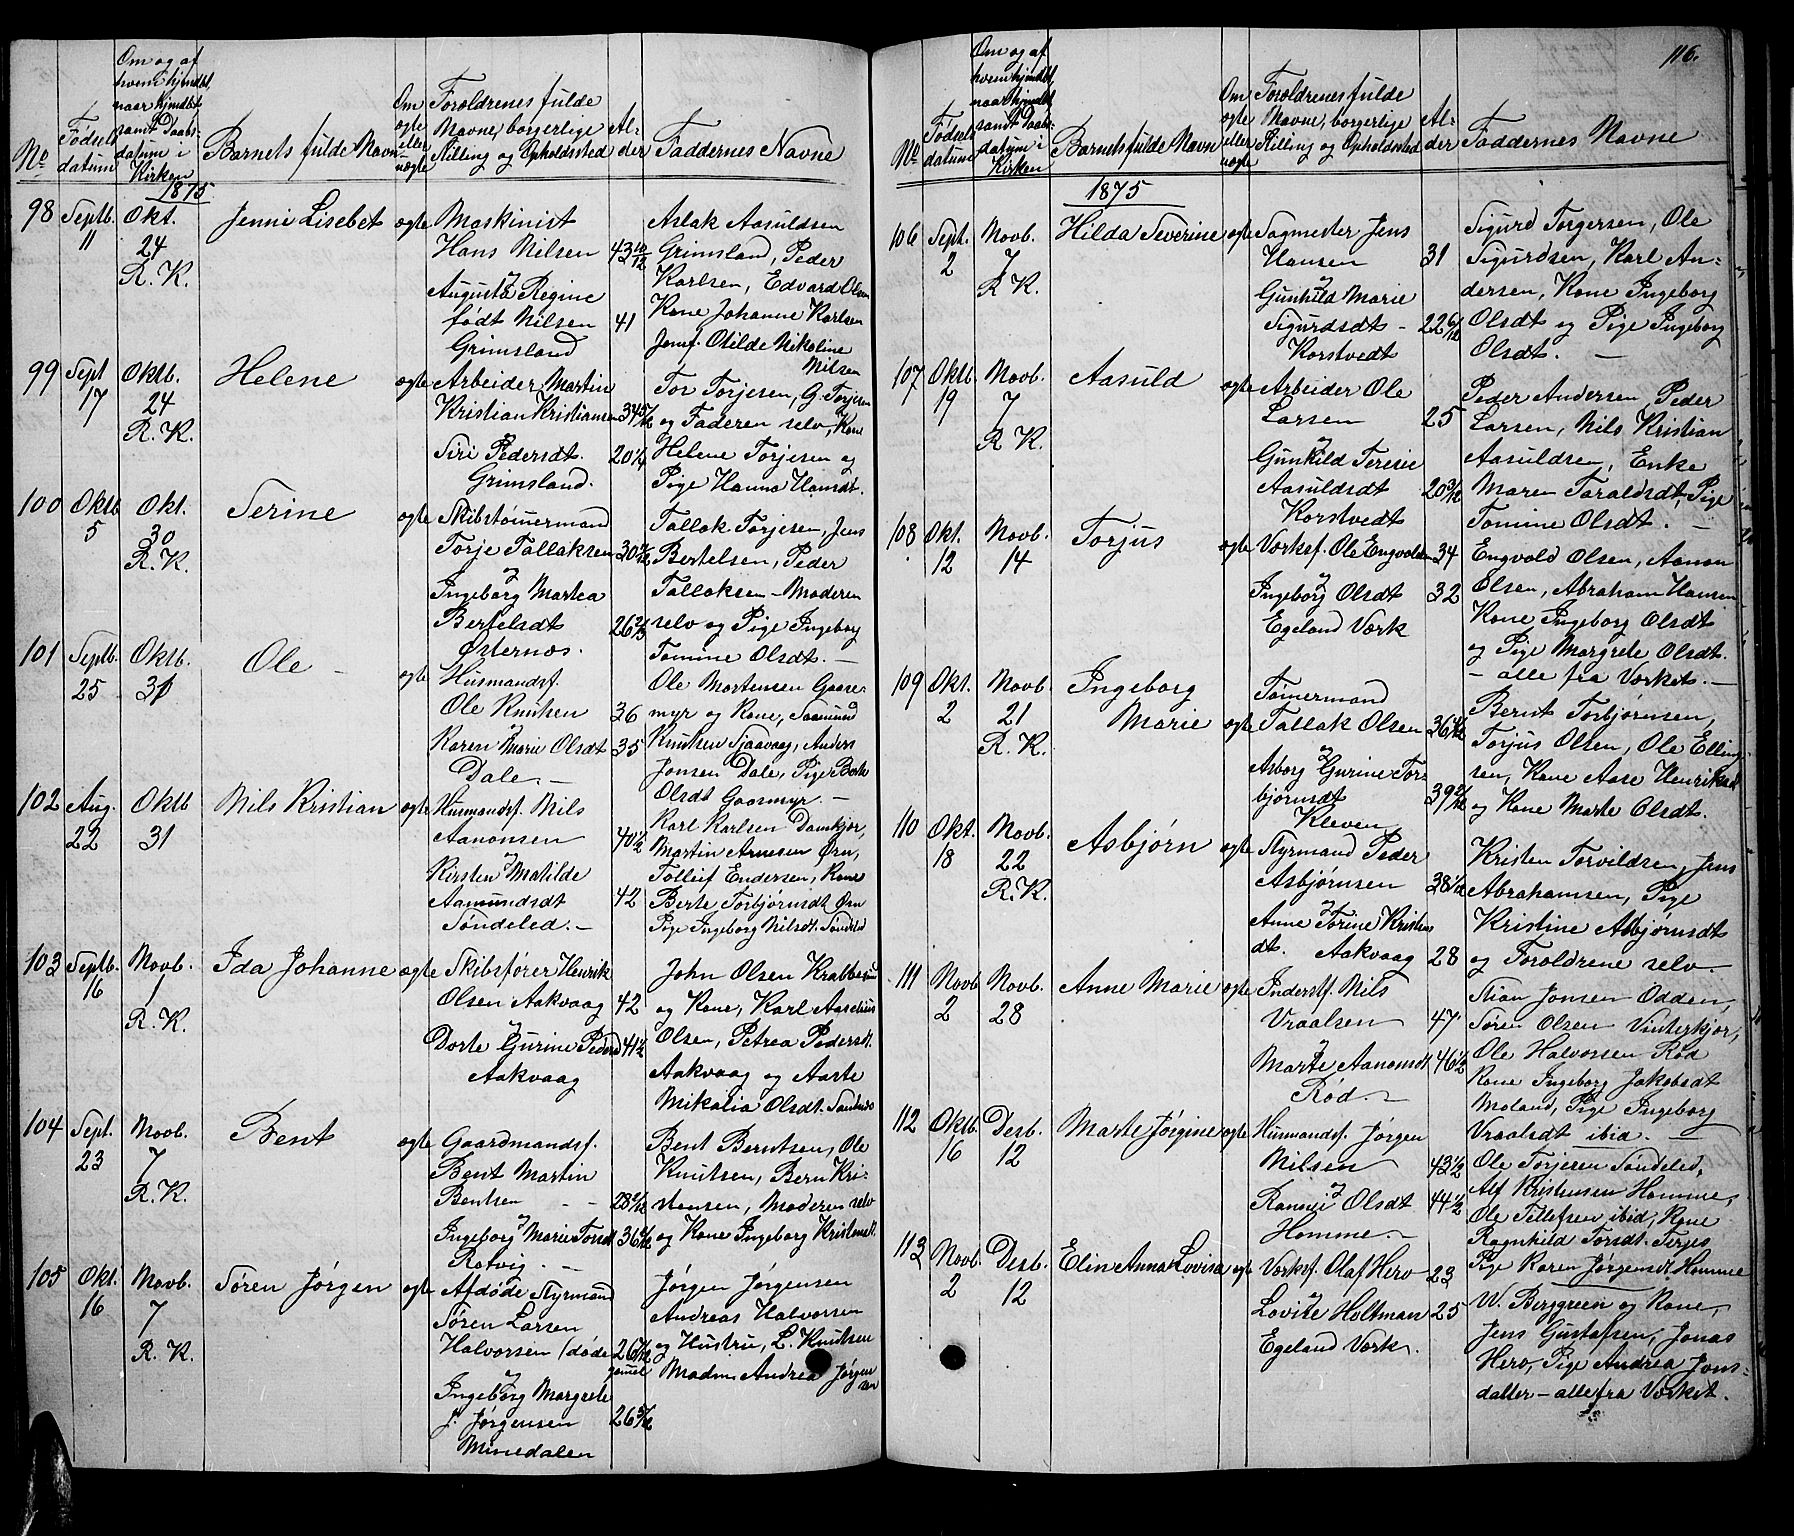 116.
No
Fødsels
datum
Om og af
hvem hjemdøbt,
naar hjemdøbt
samt Daabs-
datum i
Kirken
Barnets fulde Navn
Om
ægte
eller
uægte
Forældrenes fulde
Navne, borgerlige
Stilling og Opholdssted
Al-
der
Faddernes Navne
1875
98 Septb. 11
Okt. 24
R. K.
Jenni Lisebet
ægte
Maskinist
Hans Nilsen 43 10/12
&
Augusta Regine
født Nilsen 41
Grimsland
Aslak Aasuldsen
Grimsland, Peder
Karlsen, Edvard Olsen
Kone Johanne Karlsen
Jomf. Otilde Nikoline
Nilsen
99 Sept 17
Oktb. 24
R. K.
Helene
ægte
Arbeider Martin
Kristian Kristiansen 34 5/12
&
Siri Pedersdt. 20 1/4
Grimsland.
Tor Torjesen, G. Torjesen
og Faderen selv, Kone
Helene Torjesen og
Pige Hanna Hansdt.
100 Oktb 5
Okt. 30
R. K.
Serine
ægte
Skibstømmermand
Torje Tallaksen 30
&
Ingeborg Martea
Bertelsdt 26 2/3
Østernæs.
Tallak Torjesen, Jens
Bertelsen, Peder
Tallaksen - Moderen
selv og Pige Ingeborg
Tomine Olsdt. —
101 Septb. 25
Oktb. 31
Ole —
ægte
Husmandsf.
Ole Knutsen 36
&
Karen Marie Olsdt 35
Dale. —
Ole Mortensen Gaase-
myr og Kone, Aamund
Knutsen Sjaavaag, Anders
Jonsen Dale, Pige Berte
Olsdt Gaasmyr. —
102 Aug. 22
Oktb 31
Nils Kristian
ægte
Husmandsf. Nils
Aanonsen 40 1/2
&
Kirsten Matilde
Aamundsdt 42
Søndeled. —
Karl Karlsen Damkjær,
Martin Arnesen Ørn,
Tollef Endersen, Kone
Berte Torbjørnsdt Ørn
Pige Ingeborg Nilsdt. Søndeled
103 Septb. 16
Novb. 1
R. K.
Ida Johanne
ægte
Skibsfører Henrik
Olsen Aakvaag 42
&
Dorte Gurine Pedersd 41 1/2
Aakvaag
John Olsen Krabbesund
og Kone, Karl Aaselius
Olsen, Petrea Pedersdt.
Aakvaag og Aaste
Mikalia Olsdt. Sandnæs
104 Sept. 23
Novb. 7
R. K.
Bent
ægte
Gaardmandsf.
Bent Martin
Bentsen - - 28
&
Ingeborg Marie Torsdt 36
Rotvig. —
Bent Berntsen, Ole
Knutsen, Bern Kri-
stensen, Moderen selv
og Kone Ingeborg Kristensdt.
105 Okt. 16
Novb. 7
R. K.
Søren Jørgen
ægte
Afdøde Styrmand
Søren Larsen
Halvorsen (døde 26
gammel
&
Ingeborg Margrete
f. Jørgensen 26 5/12
Minedalen
Jørgen Jørgensen
Andreas Halvorsen
og Hustru, L. Knutsen
Madm Andrea Jørgen
sen
No
Fødsels
datum
Om og af
hvem hjemdøbt,
naar hjemdøbt
samt Daabs-
datum i
Kirken
Barnets fulde Navn
Om
ægte
eller
uægte
Forældrenes fulde
Navne, borgerlige
Stilling og Opholdssted
Al-
der
Faddernes Navne
1875
106 Sept. 2
Novb. 7
R K.
Hilda Severine
ægte
Sagmester Jens
Hansen 31
&
Gunhild Marie
Sigurdsdt - 22 6/12
Korstvedt
Sigurd Torgersen, Ole
Sigurdsen, Karl An-
dersen, Kone Ingeborg
Olsdt og Pige Ingeborg
Olsdt. —
107 Oktb. 19
Novb. 7
R K.
Aasuld
ægte
Arbeider Ole
Larsen 25
&
Gunhild Teresie
Aasuldsdt 20 3/12
Korstvedt
Peder Andersen, Peder
Larsen, Nils Kristian
Aasuldsen, Enke
Maren Taraldsdt, Pige
Tomine Olsdt. —
108 Okt. 12
Novb. 14
Torjus
ægte
Værksf. Ole Engvoldsen 34
&
Ingeborg Olsdt 32
Egeland Værk
Engvold Olsen, Aanon
Olsen, Abraham Hansen
Kone Ingeborg Olsdt
og Pige Margrete Olsdt.
- alle fra Værket. —
109 Okt. 2
Novb. 21
R. K.
Ingeborg
Marie
ægte
Tømmermand
Tallak Olsen 36
&
Asborg Gurine Tor-
bjørnsdt 39
Kleven
Bernt Torbjørnsen,
Torjus Olsen, Ole Elling-
sen, Kone Aase Henriksdt
og Kone Marte Olsdt.
110 Okt. 18
Novb. 22
R. K.
Asbjørn
ægte
Styrmand Peder
Asbjørnsen 38 1/2
&
Anne Torine Kristens
dt. Aakvaag 28
Kristen Torvildsen, Jens
Abrahamsen, Pige
Kristine Asbjørnsdt
og Forældrene selv. —
111 Novb 2
Novb. 28
Anne Marie
ægte
Inderstf. Nils
Vraalsen 47
&
Marte Aanonsdt 46 1/2
Rød. —
Stian Jonsen Odden,
Søren Olsen Vinterkjær,
Ole Halvorsen Rød
Kone Ingeborg Jakobsdt
Moland, Pige Ingeborg
Vraalsdt ibid. —
112 Oktb. 16
Desb. 12
Marte Jørgine
ægte
Husmandsf. Jørgen
Nilsen 43 1/2
&
Ranvei Olsdt 44 1/2
Homme. —
Ole Torjesen Søndeled,
Alf Kristensen Homme,
Ole Tellefsen ibid, Kone
Ragnhild Torsdt. Terjes
Pige Karen Jørgensdt. Homme
113 Novb. 2
Desb. 12
Elin Anna Lovisa
ægte
Værksf. Olaf Hero 23
&
Lovise Holtman 25
Egeland Værk.
W. Berggreen og Kone,
Jens Gustafsen, Jonas
Hero, Pige Andrea Jons-
datter - alle fra Værket.